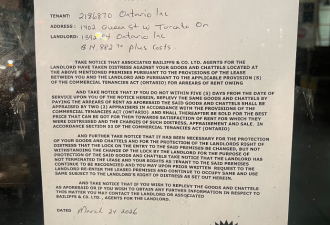 TENANT: 2196870 Ontario Inc
ADDRESS: 1402 Queen st W Toronto On
LANDLORD: Ontario Inc
$14,882 plus costs
TAKE NOTICE THAT ASSOCIATED BAILIFFS & CO. LTD. AGENTS FOR THE
LANDLORD HAVE TAKEN DISTRESS AGAINST YOUR GOODS AND CHATTELS LOCATED AT
THE ABOVE MENTIONED PREMISES PURSUANT TO THE PROVISIONS OF THE LEASE
BETWEEN YOU AND THE LANDLORD AND PURSUANT TO THE APPLICABLE PROVISION (S)
OF THE COMMERCIAL TENANCIES ACT (ONTARIO) FOR ARREARS OF RENT OWING
AND TAKE NOTICE THAT IF YOU DO NOT WITHIN FIVE (5) DAYS FROM THE DATE OF
SERVICE UPON YOU OF THE NOTICE HEREIN, REPLEVY THE SAME GOODS AND CHATTELS BY
PAYING THE ARREARS OF RENT AS AFORESAID THE SAID GOODS AND CHATTELS SHALL BE
APPRAISED BY TWO (2) APPRAISERS IN ACCORDANCE WITH THE PROVISIONS OF THE
COMMERCIAL TENANCIES ACT (ONTARIO) AND SHALL THEREAFTER BE SOLD FOR THE BEST
PRICE THAT CAN BE GOT FOR THEM TOWARDS SATISFACTION OF RENT FOR WHICH THEY
WERE DISTRAINED AND THE CHARGES OF SUCH DISTRESS, APPRAISEMENT AND SALE. IN
ACCORDANCE SECTION 53 OF THE COMMERCIAL TENANCIES ACT (ONTARIO)
AND FURTHER TAKE NOTICE THAT IT HAS BEEN NECESSARY FOR THE PROTECTION
OF YOUR GOODS AND CHATTELS AND FOR THE PROTECTION OF THE LANDLORDS RIGHT OF
DISTRESS THAT THE LOCK ON THE ENTRY TO THE SAID PREMISES BE CHANGED, BUT NOT
WITHSTANDING THE CHANGE OF THE LOCK BY THE LANDLORD FOR THE PURPOSE OF
PROTECTION OF THE SAID GOODS AND CHATTELS TAKE NOTICE THAT THE LANDLORD HAS
NOT TERMINATED THE LEASE AND YOUR RIGHTS AS TENANT TO THE SAID PREMISES
CONTINUE TO BE RECOGNIZED AND YOU MAY UPON PRIOR WRITTEN REQUEST TO THE
LANDLORD RE-ENTER THE LEASED PREMISES AND CONTINUE TO OCCUPY SAME AND USE
SAME SUBJECT TO THE LANDLORD'S RIGHT OF DISTRESS AS SET OUT HEREIN.
AND TAKE NOTICE THAT IF YOU WISH TO REPLEVY THE GOODS AND CHATTELS
AS AFORESAID OR IF YOU WISH TO OBTAIN ANY FURTHER INFORMATION IN RESPECT TO
THIS MATTER YOU MAY CONTACT THE LANDLORD OR ASSOCIATED
BAILIFFS & CO. LTD., AGENTS FOR THE LANDLORD.
DATED March 24 2026